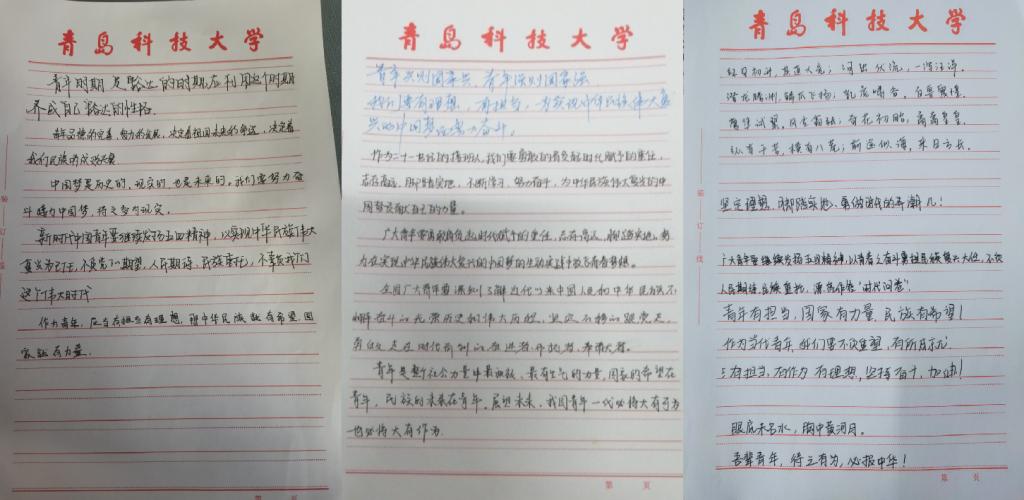 青岛科技大学
青年时期是豁达的时期,应利用这个时期
养成自己豁达的性格.
青年思想的完善,努力的发展,决定着祖国未来的命运,决定着
我们民族的成败兴衰
中国梦是历史的,现实的,也是未来的。我们要努力奋
斗将为中国梦,将之变为现实。
新时代中国青年要继续发扬五四精神,以实现中华民族伟大
复兴为己任,不负党的期望,人民期待,民族重托,不辜负我们
这个伟大时代
作为青年,应当有担当有理想,那中华民族就有希望,国
家就有力量.
青岛科技大学
青年兴则国家兴 青年强则国家强
我们要有理想,有担当,为实现中华民族伟大复
兴的中国梦而努力奋斗。
作为二十一世纪的接班人,我们要勇敢的肩负起时代赋予的重任,
志存高远,脚踏实地,不断学习,努力奋斗,为中华民族伟大复兴的中
国梦贡献自己的力量。
广大青年要勇敢肩负起时代赋予的重任,志存高远,脚踏实地,努
力在实现中华民族伟大复兴的中国梦的生动实践中放飞青春梦想。
全国广大青年要深刻了解近代以来中国人民和中华民族不
懈奋斗的光荣历史和伟大历程,坚定不移跟党走,
勇做走在时代前列的奋进者、开拓者、奉献者。
青年是整个社会力量中最积极、最有生气的力量,国家的希望在
青年,民族的未来在青年。展望未来,我国青年一代必将大有可为
也必将大有作为.
第 页
青岛科技大学
红日初升,其道大光;河出伏流,一泻汪洋.
潜龙腾渊,鳞爪飞扬;乳虎啸谷,百兽震惶.
鹰隼试翼,风尘吸张;奇花初胎,矞矞皇皇.
纵有千古,横有八荒;前途似海,来日方长.
坚定理想,脚踏实地,勇做时代的弄潮儿!
广大青年要继续发扬五四精神,以青春之奋斗肩担民族复兴大任,不负
人民期待、民族重托,源源作答"时代问卷".
青年有担当,国家有力量,民族有希望!
作为当代青年,我们要不负重望,有所成就.
有担当,有作为,有理想,坚持奋斗,加油!
眼底未名水,胸中黄河月。
吾辈青年,待之有为,必报中华!
第 页